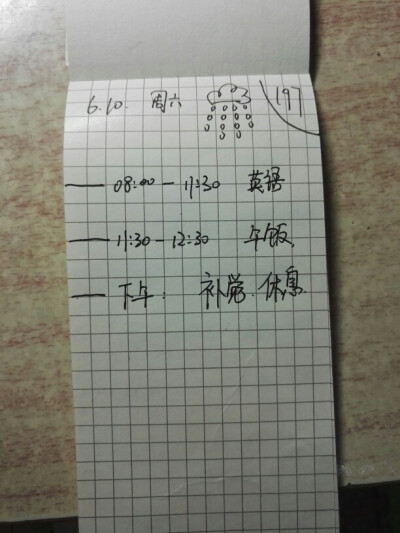 6.10. 周六 197
— 08:00 — 11:30 英语
— 11:30 - 12:30 午饭
— 下午: 补觉.休息.